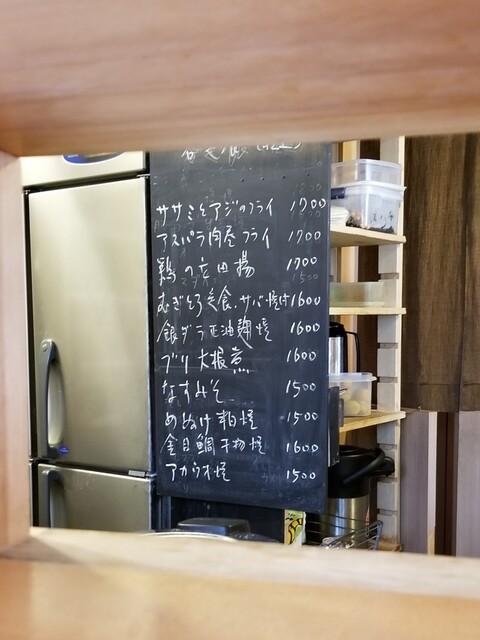 ササミとアジのフライ 1700
アスパラ肉巻フライ 1700
鶏の立田揚 1700
むぎとろ定食、サバ焼付 1600
銀ダラ正油麹焼 1600
ブリ大根煮 1600
なすみそ 1500
めぬけ粕焼 1500
金目鯛干物焼 1600
アカウオ焼 1500